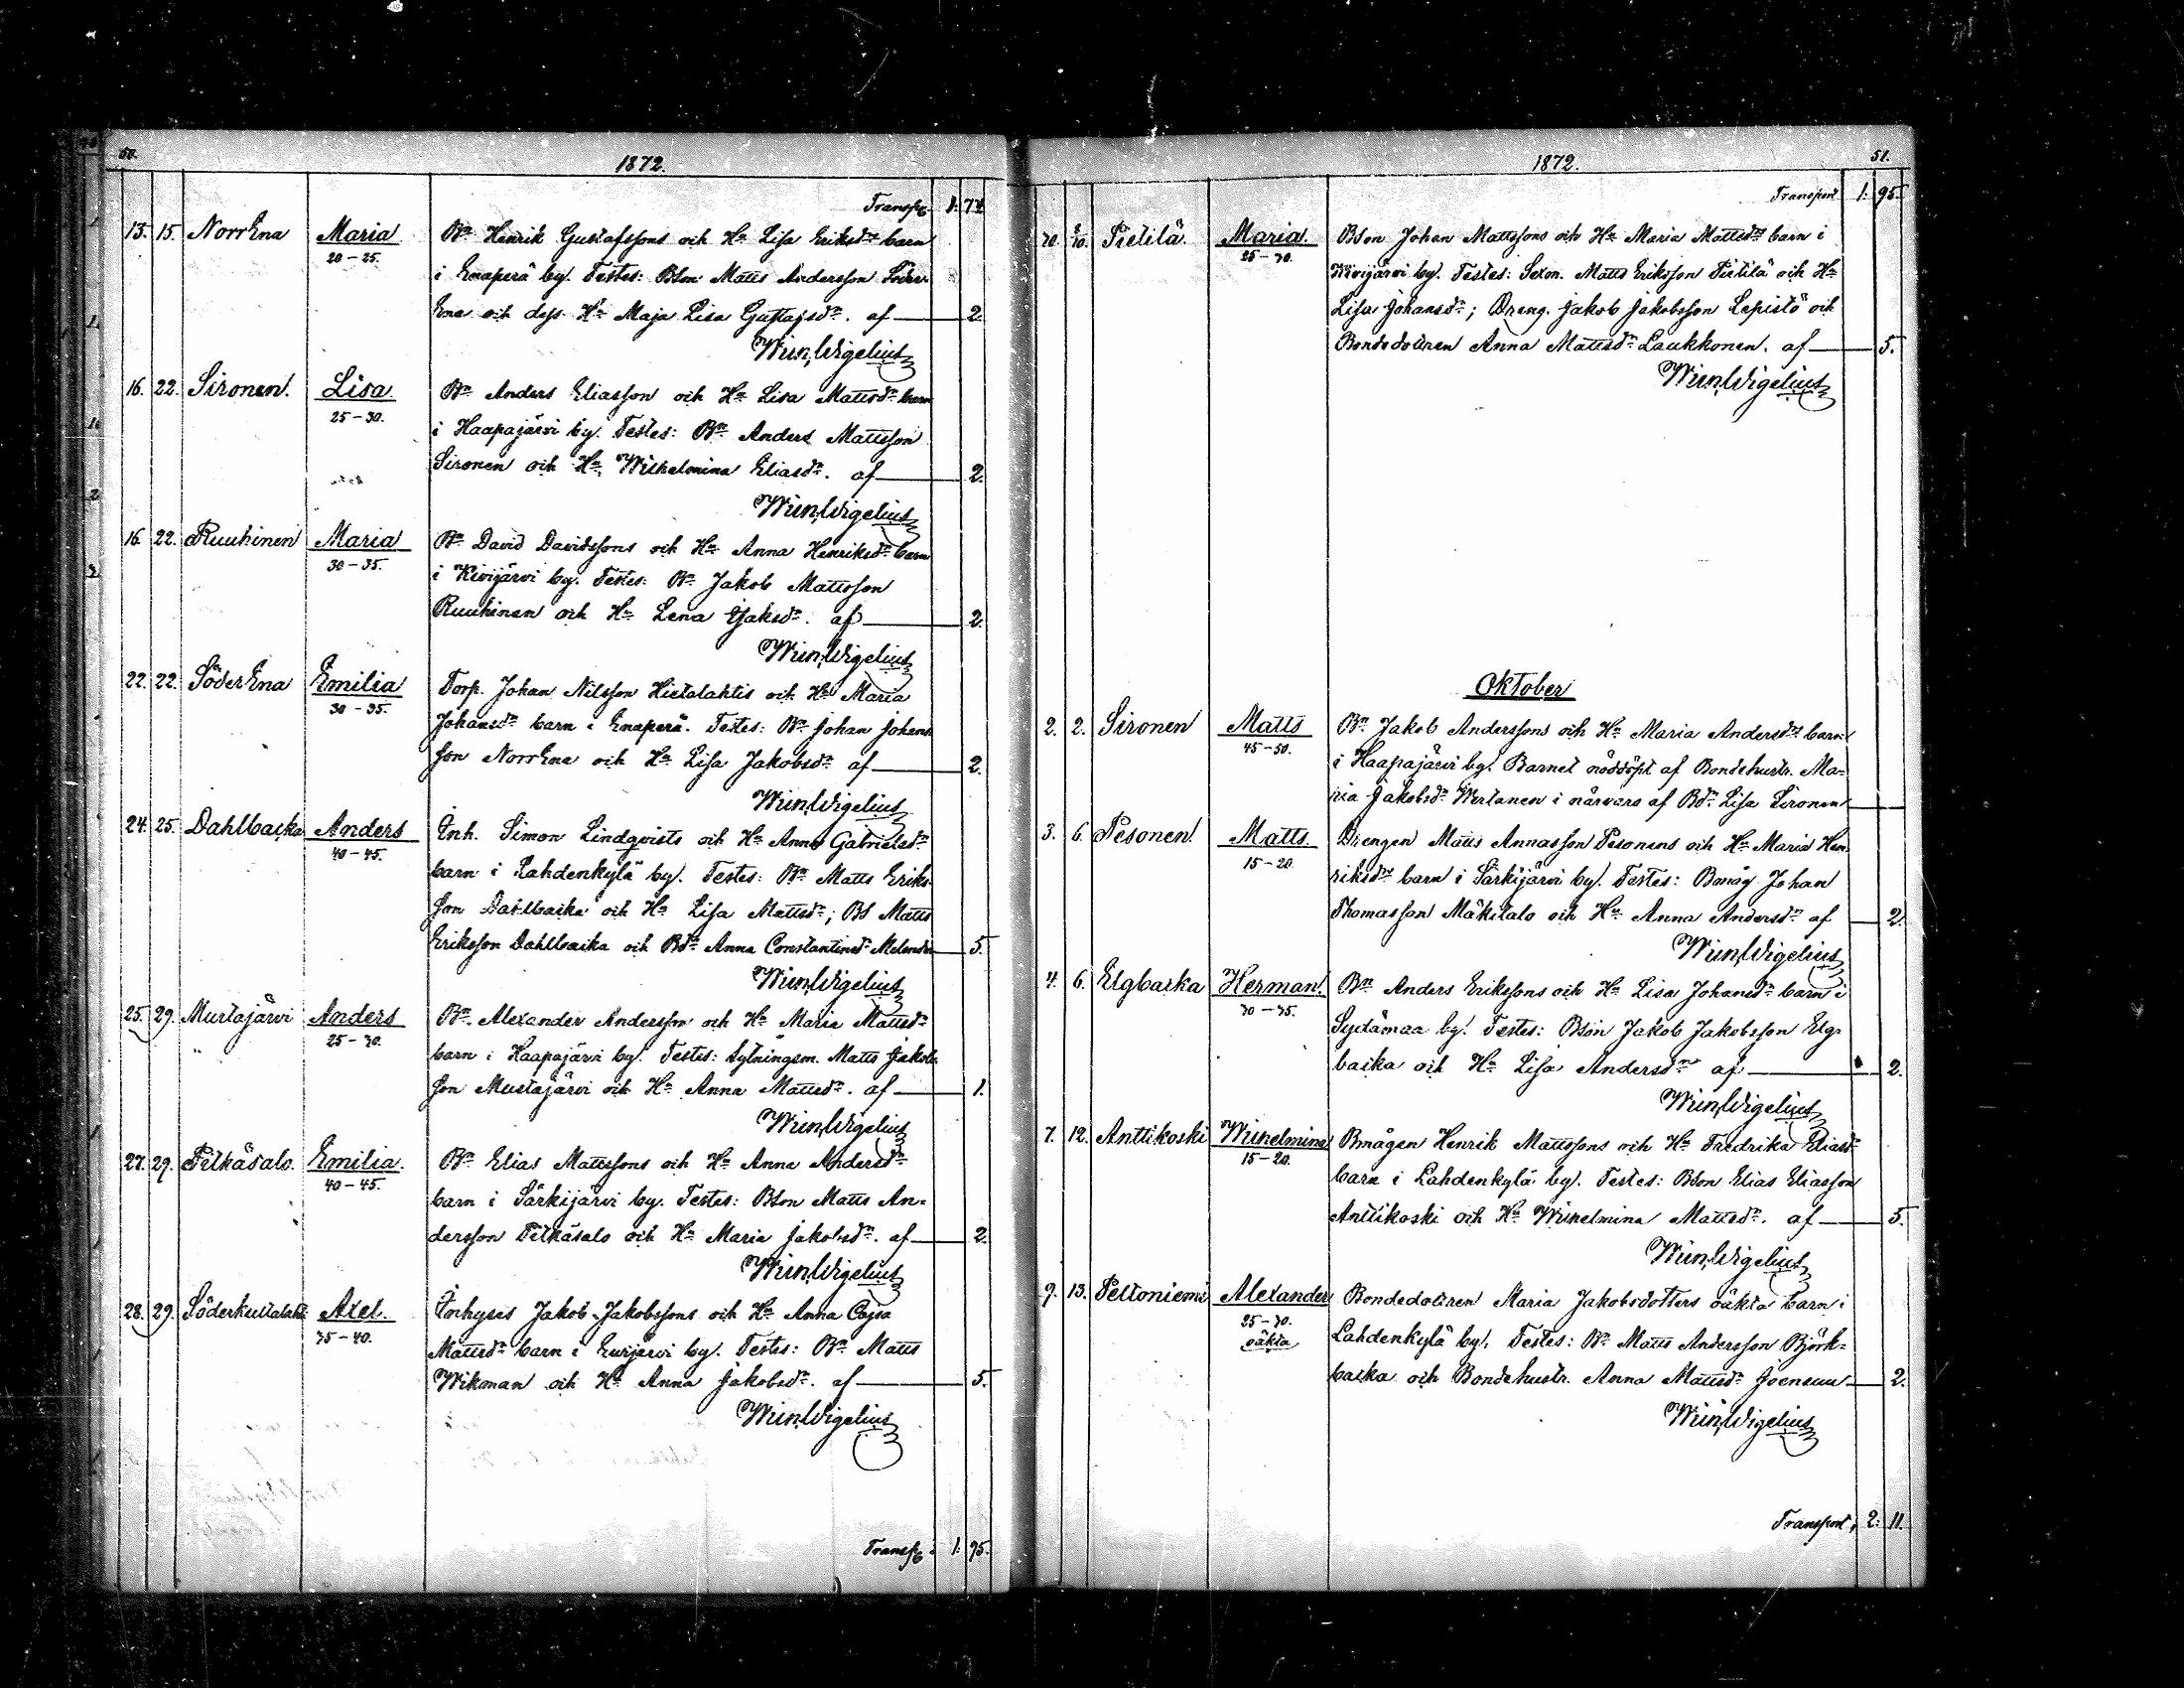 50.
1872.
Transp. 1: 74
13. 15. NorrEna Maria Bn Henrik Gustafssons och Hu Lisa Eriksdrs barn
20-25. i Enaperä by. Testes: Bson Matts Andersson Söder
Ena och dess Hu Maja Lisa Gustafsdr. af 2.
Wigelius
16. 22. Sironen. Lisa. Bn Anders Eliasson och Hu Lisa Mattsdr barn
25-30. i Haapajärvi by. Testes: Bn Anders Mattsson
Sironen och Hu Wilhelmina Eliasdr. af 2.
Wigelius
16. 22. Ruuhinen Maria Bn David Davidssons och Hu Anna Henriksdr barn
30-35. i Kivijärvi by. Testes: Bn Jakob Mattsson
Ruuhinen och Hu Lena af 2.
Wigelius
22. 22. SöderEna Emilia Torp. Johan Nilsson Hietalahtis och Hu Maria
30-35. Johansdrs barn i Enaperä. Testes: Bn Johan Johans
son NorrEna och Hu Lisa Jakobsdr af 2.
Wigelius
24. 25. Dahlbacka Anders Inh. Simon Lindqvists och Hu Anna Gabrielsdr
40-45. barn i Lahdenkylä by. Testes: Bn Matts Eriks
son Dahlbacka och Hu Lisa Mattsdr; BS Matts
Eriksson Dahlbacka och Bdr Anna Constantinsdr Melender 5.
Wigelius
25. 29. Mustajärvi Anders Bn Alexander Andersson och Hu Maria Mattsdr
25-30. barn i Haapajärvi by. Testes: Sytningsm. Matts Jakobs
son Mustajärvi och Hu Anna Mattsdr. af 1.
Wigelius
27. 29. Pitkäsalo. Emilia. Bn Elias Mattssons och Hu Anna Andersdr
40-45. barn i Särkijärvi by. Testes: Bson Matts An=
dersson Pitkäsalo och Hu Maria Jakobsdr. af 2.
Wigelius
28. 29. Axel. Inhyses Jakob Jakobssons och Hu Anna Cajsa
35-40. Mattsdr barn i by. Testes: Bn Matts
Wikman och Hu Anna Jakobsdr. af 5.
Wigelius
Transp. 1: 95.
1872.
51.
Transport 1: 95.
30. 2/10. Pietilä. Maria. Bson Johan Mattssons och Hu Maria Mattsdrs barn i
25-30. Kivijärvi by. Testes: Sexm. Matts Eriksson Pietilä och Hu
Lisa Johansdr; Dreng. Jakob Jakobsson Lepistö och
Bondedottren Anna Mattsdr Laukkonen. af 5.
Wigelius
Oktober
2. 2. Sironen Matts Bn Jakob Anderssons och Hu Maria Andersdrs barn
45-50. i Haapajärvi by. Barnet nöddöpt af Bondehustr. Ma=
ria Jakobsdr Wirtanen i närvaro af Bdr Lisa Sironen
3. 6. Pesonen. Matts. Drengen Matts Annasson Pesonens och Hu Maria Hen
15-20. riksdrs barn i Särkijärvi by. Testes: Bmåg Johan
Thomasson Mäkitalo och Hu Anna Andersdr af 2.
Wigelius
4. 6. Elgbacka Herman. Bn Anders Erikssons och Hu Lisa Johansdr barn i
30-35. Sydämaa by. Testes: Bson Jakob Jakobsson Elg=
backa och Hu Lisa Andersdr af 2.
Wigelius
7. 12. Anttikoski Wilhelmina Bmågen Henrik Mattssons och Hu Fredrika Eliasdr
15-20. barn i Lahdenkylä by. Testes: Bson Elias Eliasson
Anttikoski och Hu Wilhelmina Mattsdr. af 5.
Wigelius
9. 13. Peltoniemi Alexander Bondedottren Maria Jakobsdotters oäkta barn i
25-30. Lahdenkylä by. Testes: Bn Matts Andersson Björk=
oäkta backa och Bondehustr. Anna Mattsdr Joensuu 2.
Wigelius
Transport, 2: 11.